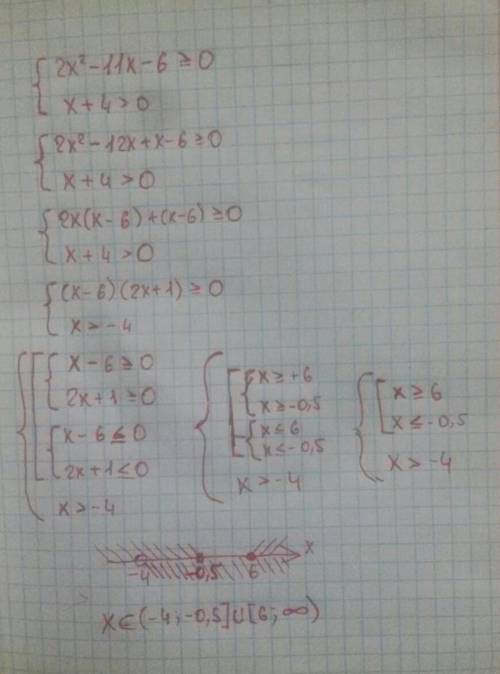 { 2x²-11x-6≥0
x+4>0
{ 2x²-12x+x-6≥0
x+4>0
{ 2x(x-6)+(x-6)≥0
x+4>0
{ (x-6)(2x+1)≥0
x>-4
{ [ { x-6≥0
2x+1≥0
{ x-6≤0
2x+1≤0
x>-4
{ [ { x≥+6
x≥-0,5
{ x≤6
x≤-0,5
x>-4
{ [ x≥6
x≤-0,5
x>-4
-4 -0,5 6 x
x∈(-4;-0,5]∪[6;∞)